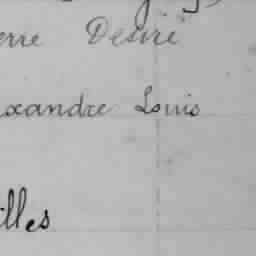 erre Desiré
xandre Louis
illes